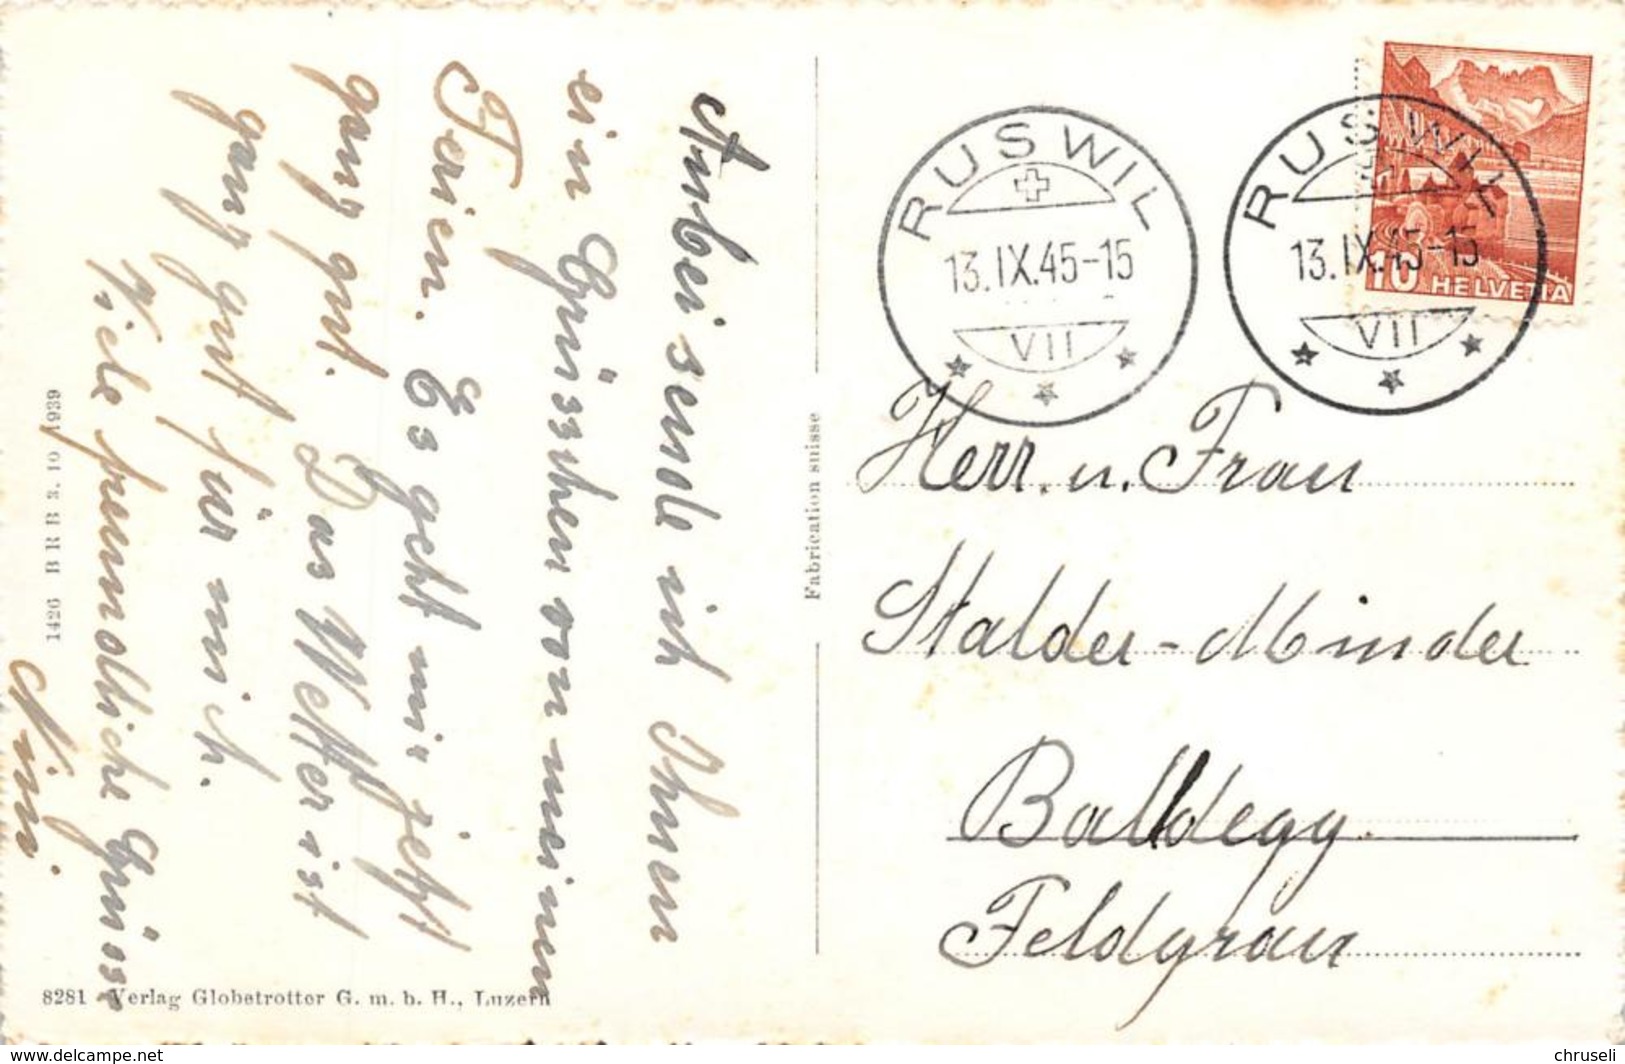 Anbei sende ich Ihnen
ein Grüsschen von meinen
Ferien. Es geht mir jetzt
ganz gut. Das Wetter ist
ganz gut für mich.
Viele freundliche Grüsse
1426 BRB 3. 10 1939
8281 Verlag Globetrotter G. m. b. H., Luzern
Fabrication suisse
RUSWIL
13.IX.45-15
VII
RUSWIL
13.IX.45-15
VII
10 HELVETIA
Herr. u. Frau
Stalder-Minder
Baldegg.
Feldgrau
www.delcampe.net
chruseli